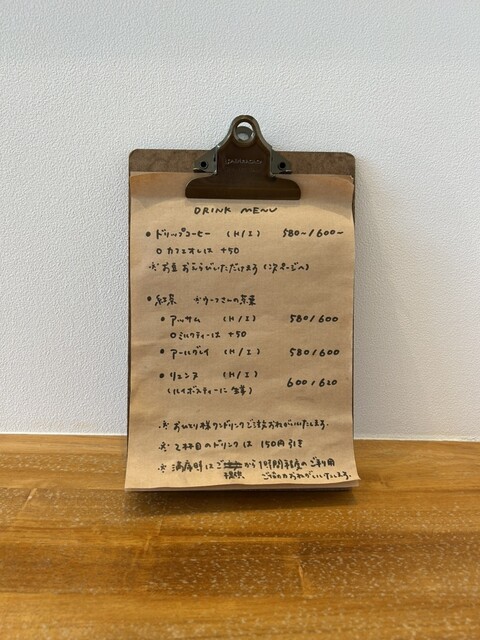 DRINK MENU
• ドリップコーヒー (H/I) 580~/600~
○ カフェオレは +50
※ お豆 おえらびいただけます (次ページへ)
• 紅茶
• アッサム (H/I) 580/600
○ ミルクティーは +50
• アールグレイ (H/I) 580/600
• リエンヌ (H/I) 600/620
(ルイボスティーに生姜)
※ おひとり様ワンドリンクご注文おねがいいたします.
※ 2杯目のドリンクは 150円引き
※ 満席時はご提供から1時間程度のご利用
ご協力おねがいいたします.